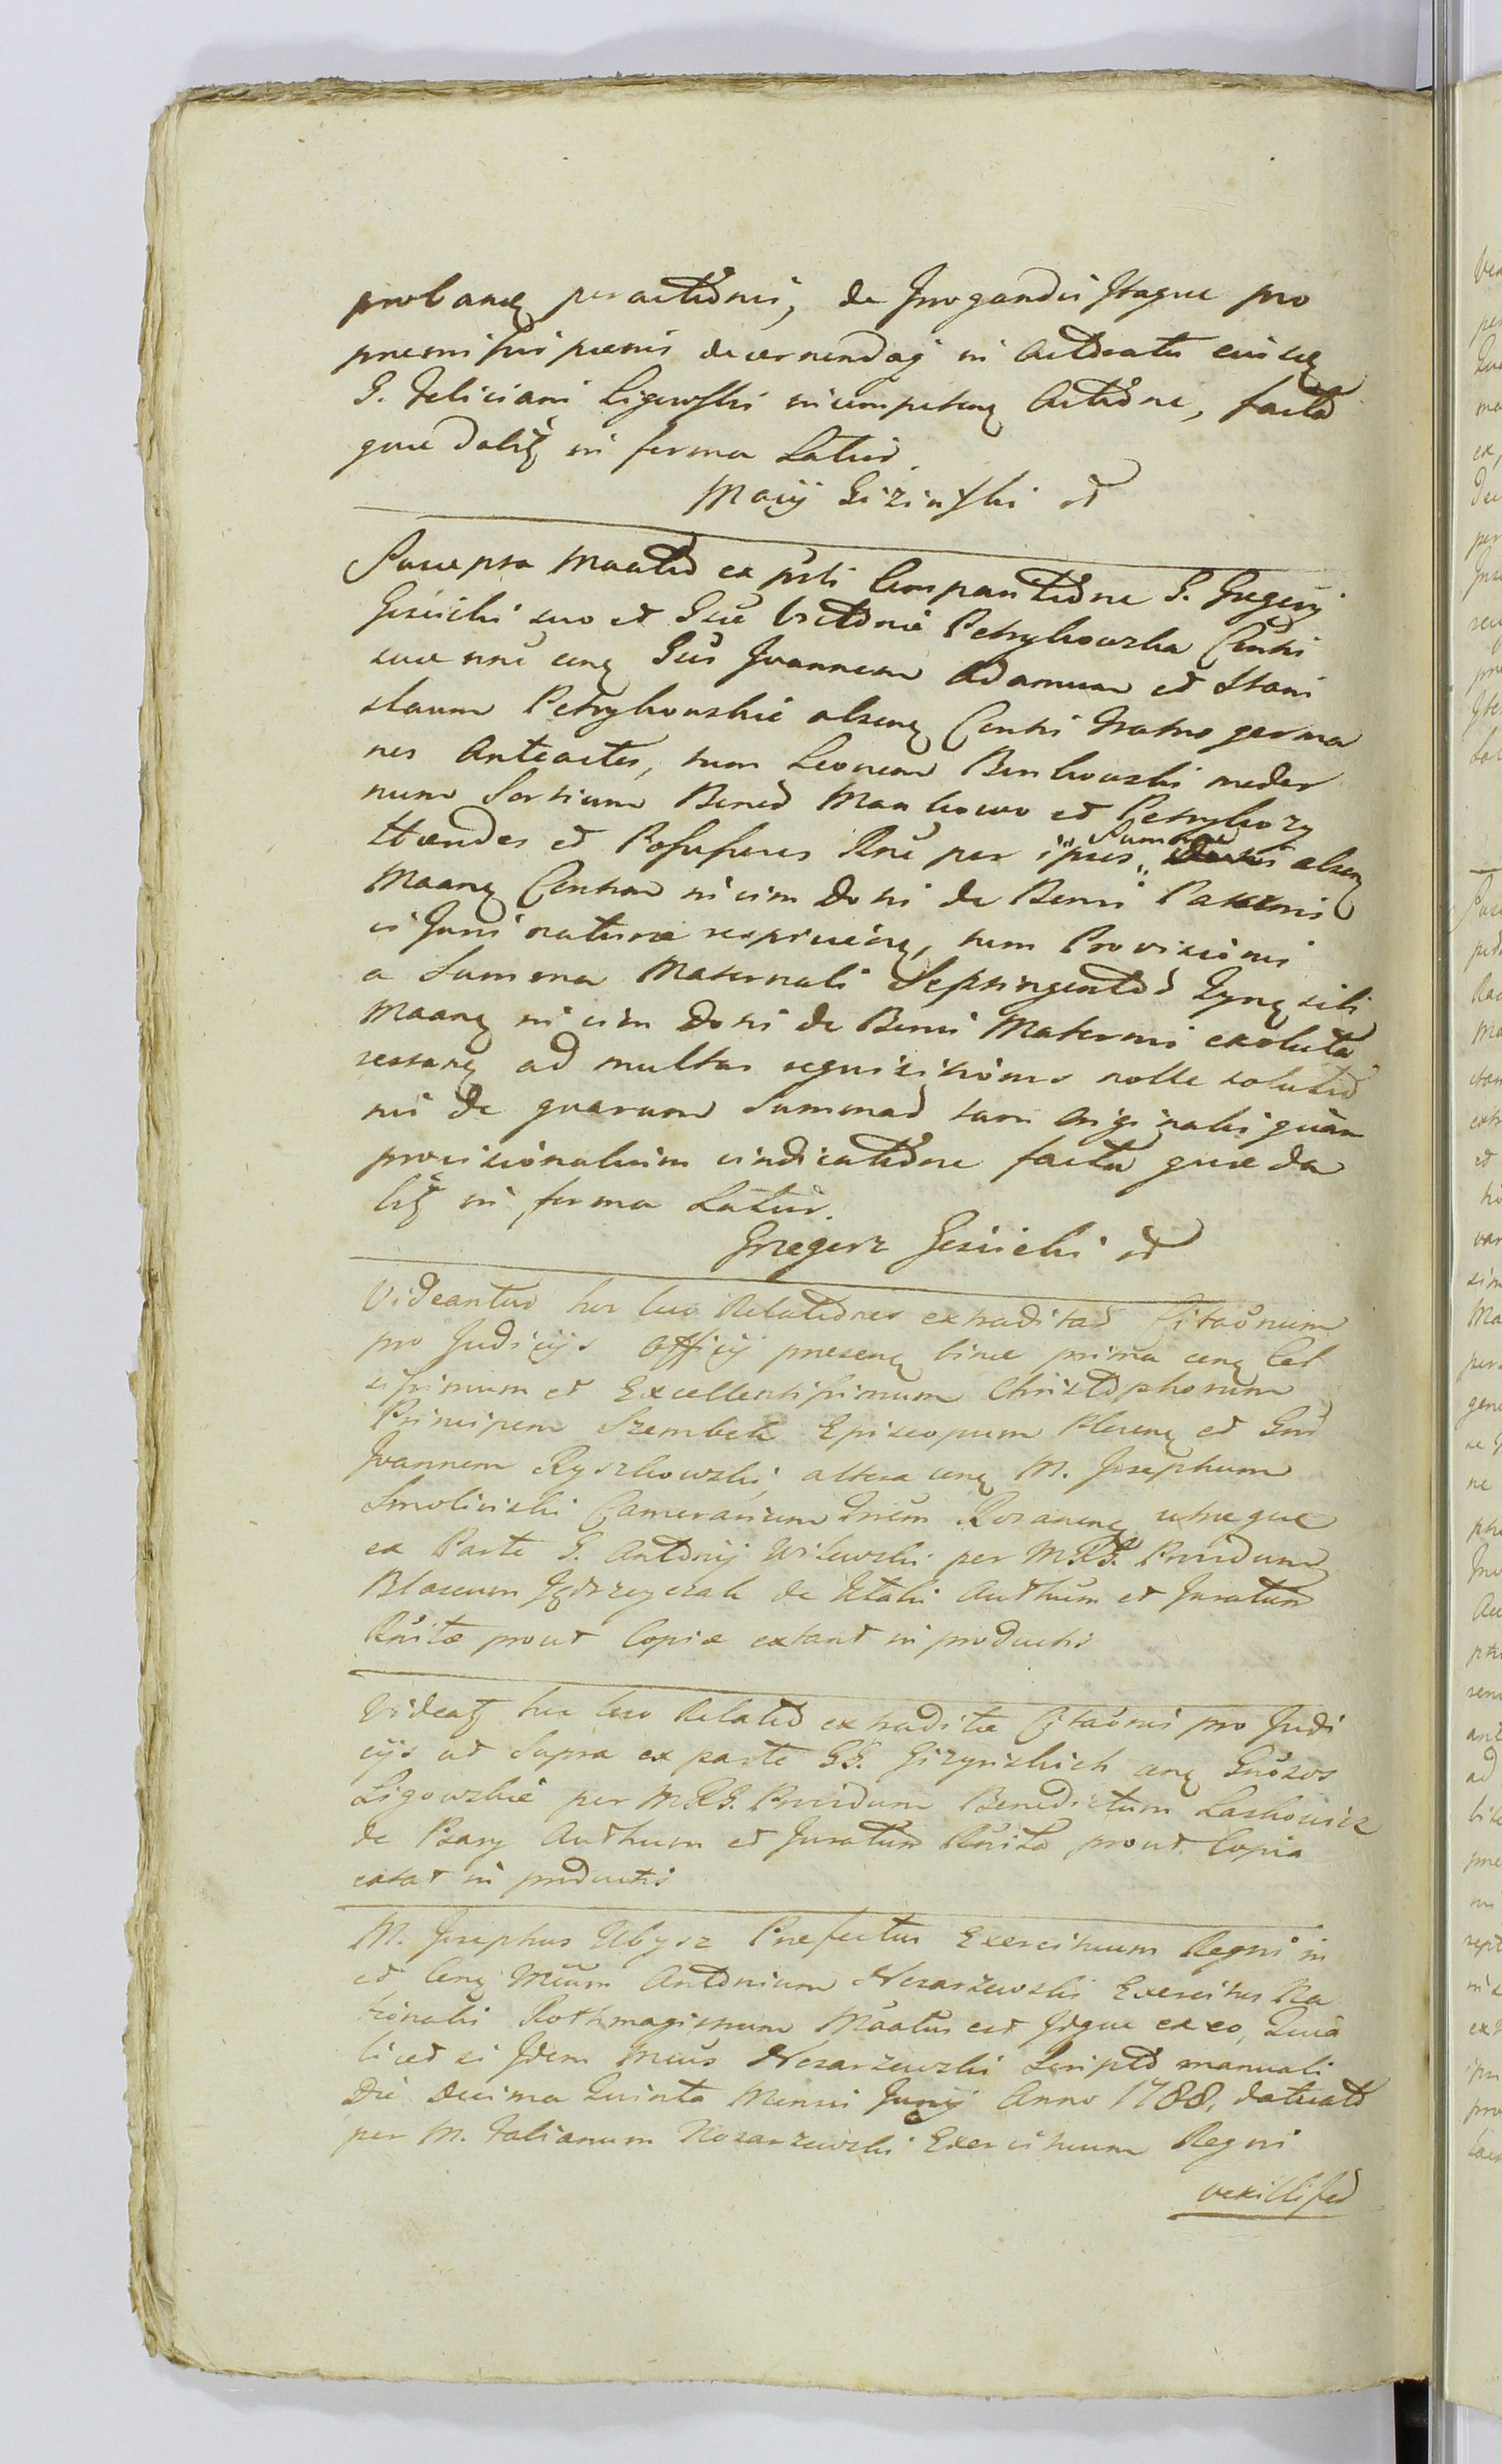 probanę peractionis, de Irrogandis Itaque pro
premissis pœnis decernendaq in Actoratu eiusdę
G. Feliciani Ligowski incompetenę Actione, facta
que dalitę in forma Latior.
Maciy Gizinski
Pari epsa Maatio ex pãti Comparitione G. Gregorij
Gesicki suo et Gsæ Victoriæ Petrykowska Conthi
suæ nnie cenę Gũs Joannem Adamum et Stani
slaum Petrykowskie alsenę Conthi Fratres germa
nes Anteactes, tum Leonem Bonkowski moder
num Sortium Bonoʒ Mankowo et Petrykozy
Hæredes et Possessores Rnẽ per ipsos „ Summæ alsenę
Maanę Conthoʒ in vim Dotis de Bonis Paternis
is Juris naturæ respicienę, tum Provisionis
a Summa Maternali Septingentoʒ Tynę sibi
Maanę in vim Dotis de Bonis Maternis exoluta
restanę ad multas requisitiones nolle solutio
nis de quarum Summaʒ tam originalis quàm
provisionalium vindicatione facta quæ da
litę in forma Latior.
Grzegorz Gesicki
Videantur hoc loco Relationes extraditaʒ Citaõnum
pro Judicijs Officij presenę binæ prima cenę Cel
sissimum et Excellentissimum Christophorum
Principem Szembek Episcopum Plocenę et Gnũ
Joannem Ryszkowski, altera cenę M. Josephum
Smolinski Camerarium Trium Rozanenę utræque
ex Parte G. Antonij Wilewski per MRG. Providum
Blasium Jędrzeyczak de Authum et Juratum
Rnitæ prout Copiæ extant in productis
Videatę hic loco Relatio extraditæ Citaõnis pro Judi
cijs ut Supra ex parte GG. Gizynskich cenę Gnõsos
Ligowskie per MRG. Providum Benedictum Laskowicz
de Psary Authum et Juratum Rnita prout Copia
extat in productis
M. Josephus Ubysz Præfectus Exercituum Regni in
et Cenę Mcũm Antonium Nosarzewski Exercitus Na
tionalis Rothmagistrum Maatus est Idque ex eo, Quia
licet si Idem Mcũs Nosarzewski Scripto manuali
Die Decima Quinta Mensis Junij Anno 1788. datuato
per M. Fabianum Nosarzewski Exercituum Regni
vexillifeʒ